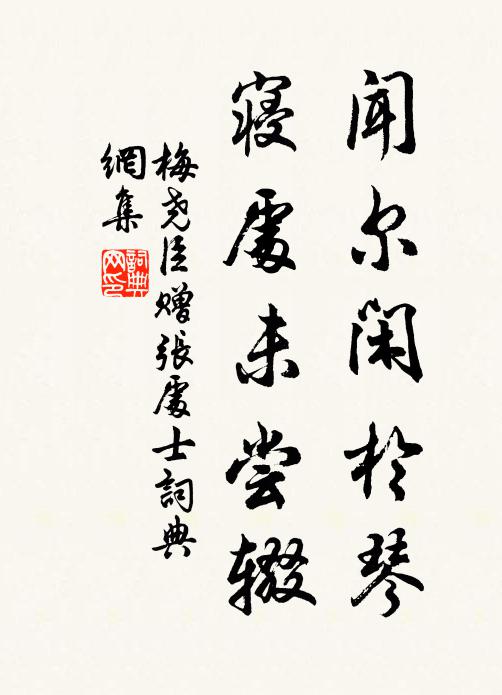 闻尔闲於琴
寝處未尝辍
梅尧臣赠張處士詞典
網集
詞典
网印